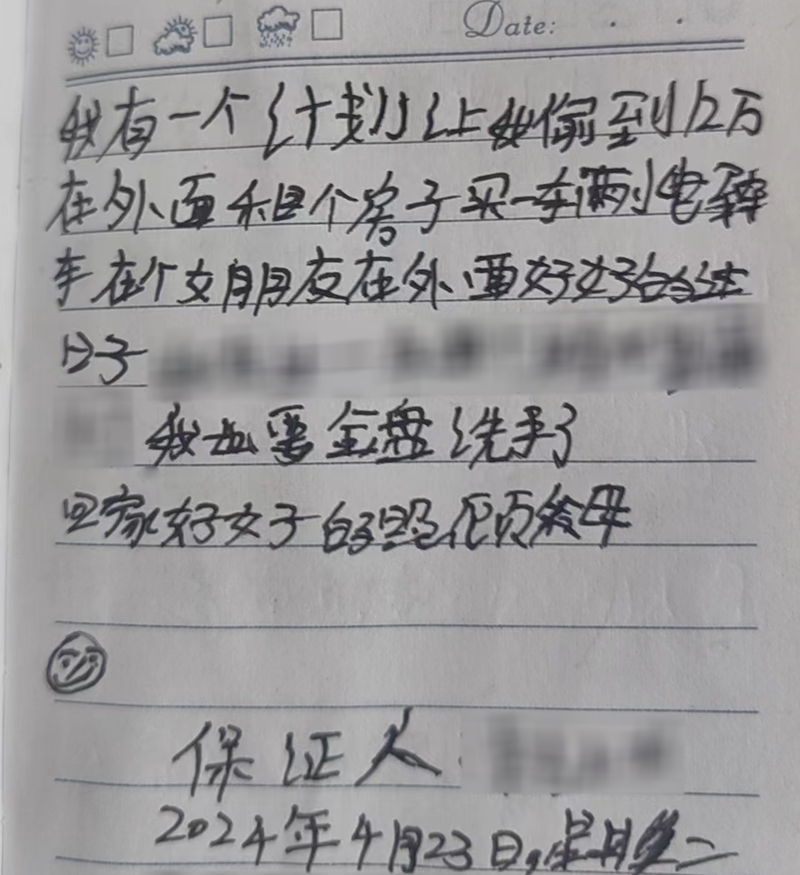 Date:
我有一个计划让我偷到12万
在外面租个房子买一车辆电
车在个女朋友在外面好好的过
日子
我也要金盘洗手了
回家好好的照顾父母
保证人
2024年4月23日,星期二